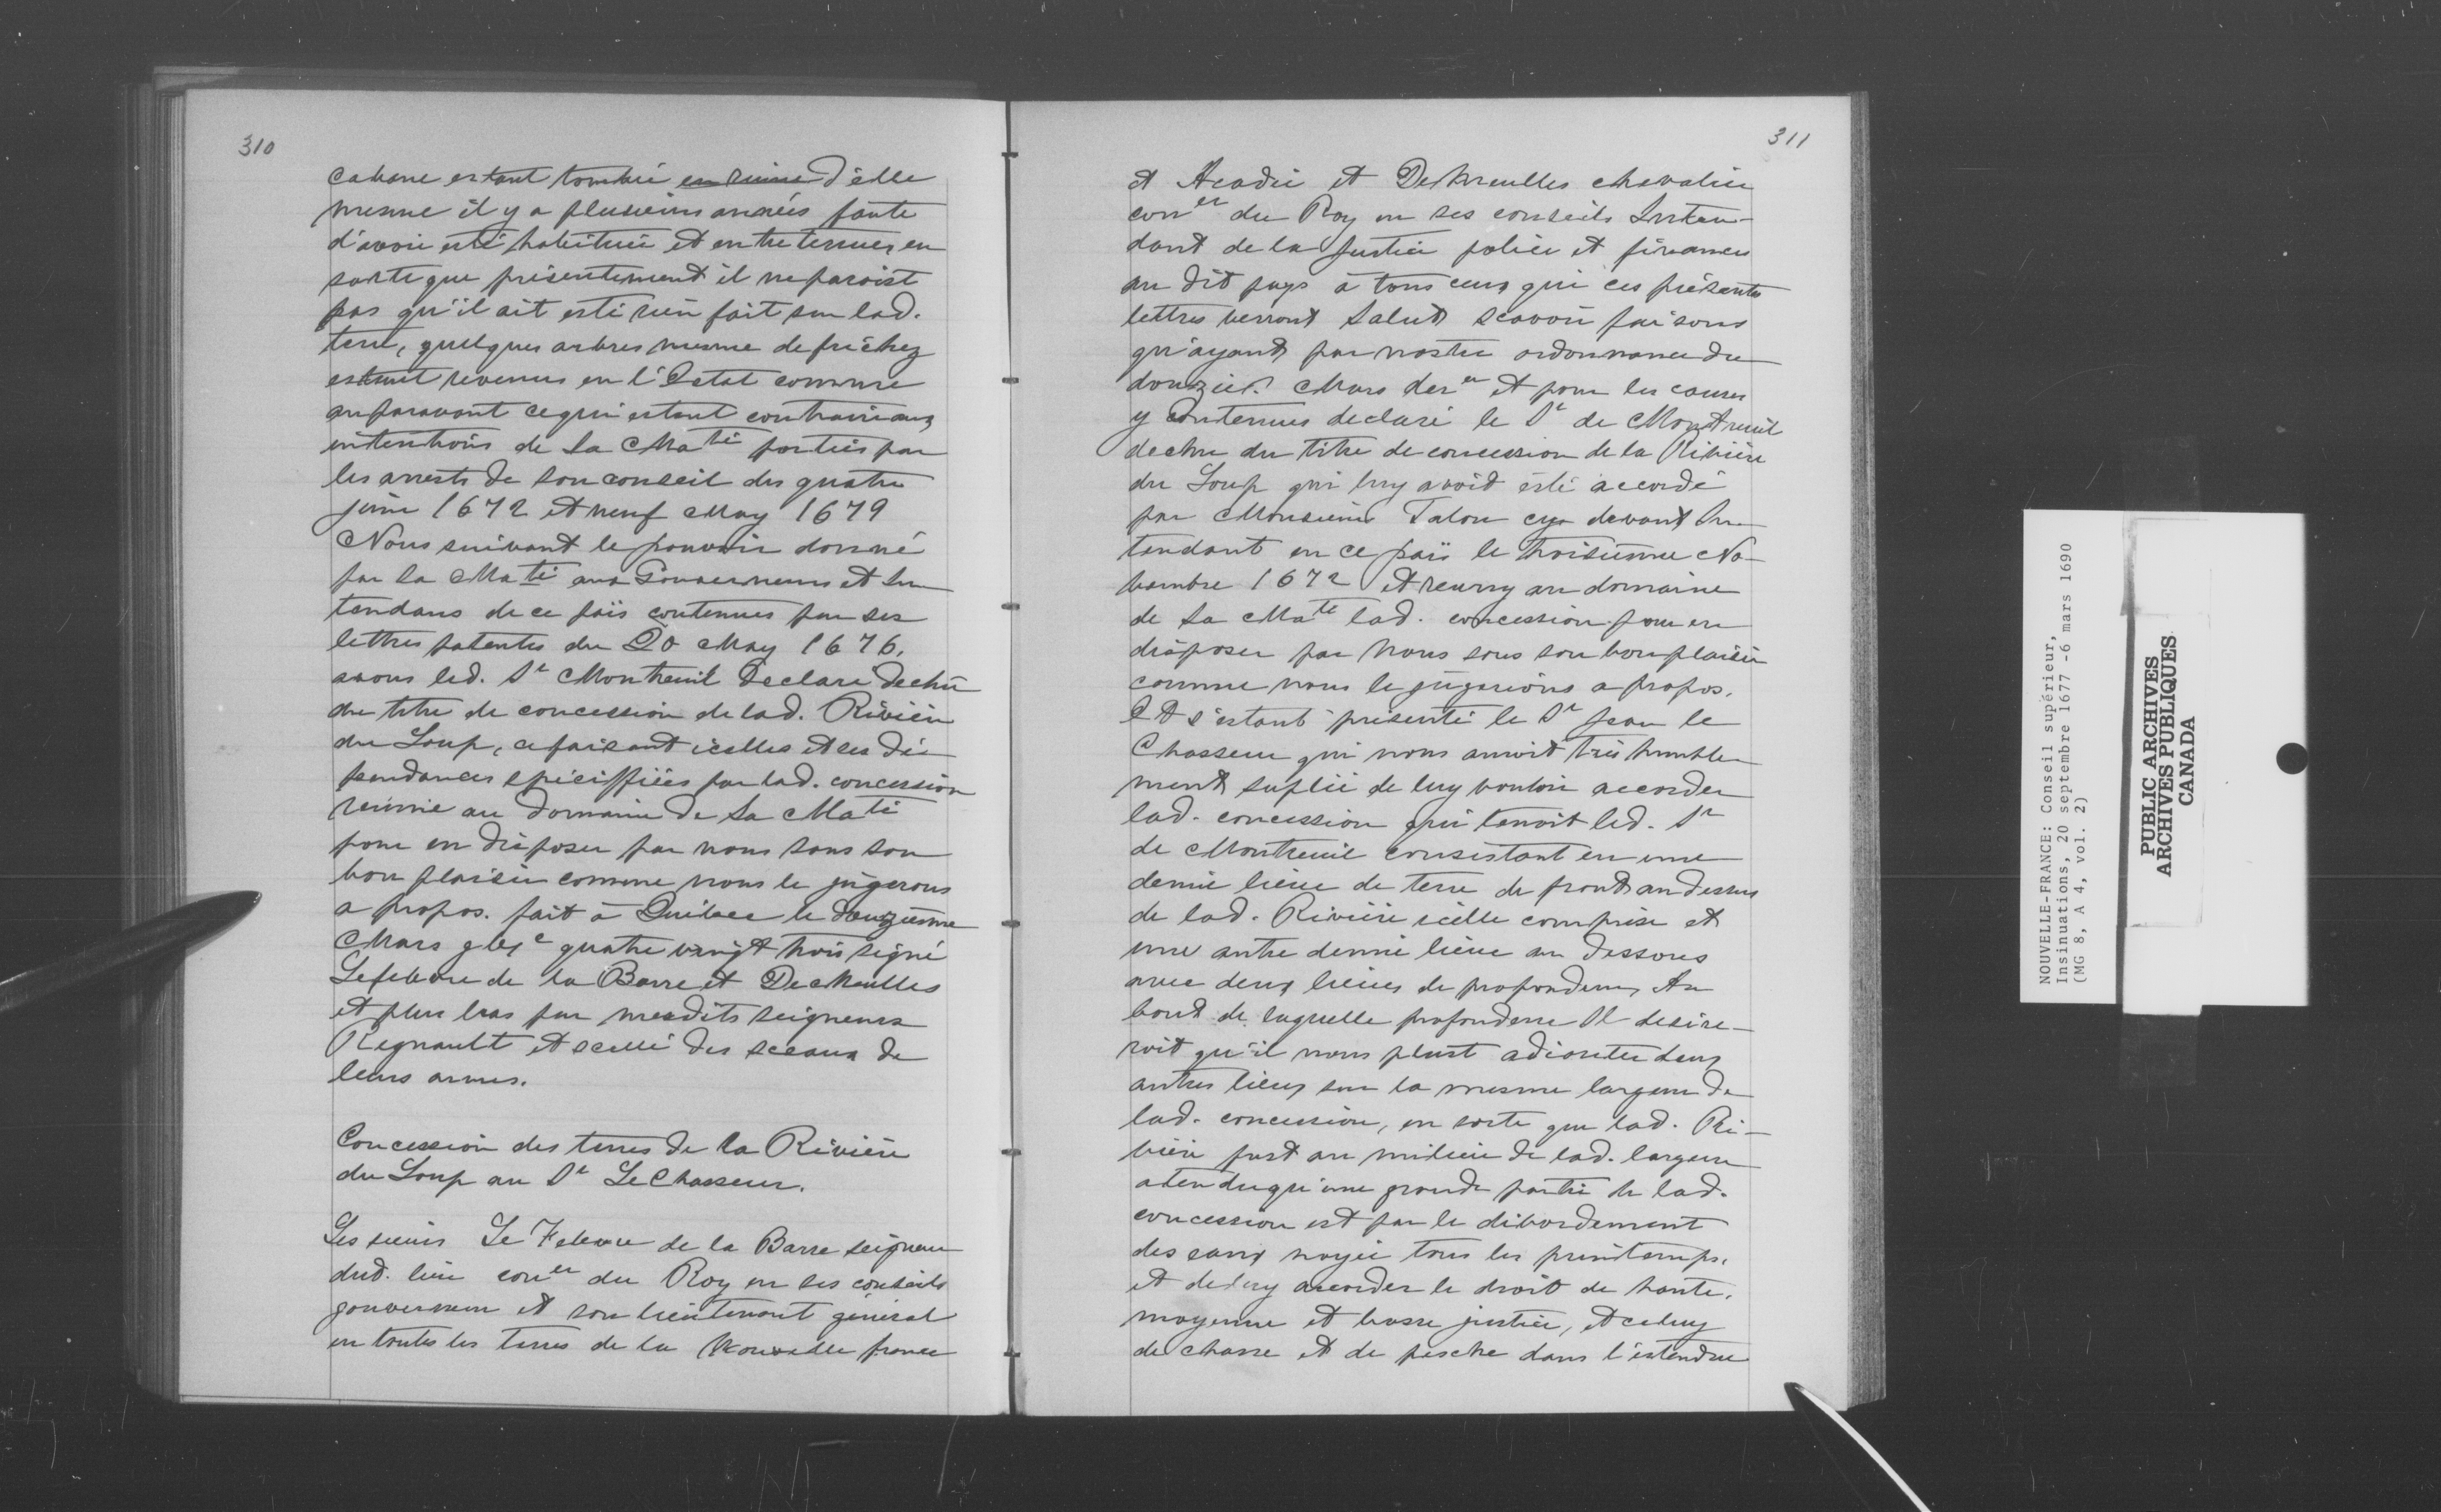 310
cabane estant tombée en ruine d'elle
mesme il y a plusieurs années faute
d'avoir esté habituée et entretenue, en
sorte que présentement il ne paroist
pas qu'il ait esté rien fait sur lad.
terre, quelques arbres mesme defrichez
estant revenus en l'Estat comme
auparavant ce qui estant contraire aux
intentions de Sa Ma té portées par
les arrests de son conseil des quatre
juin 1672 et neuf May 1679
Nous suivant le pouvoir donné
par Sa Ma té aux Gouverneurs et In
tendans de ce païs contenues par ses
lettres patentes du 20 May 1676,
avons led. Sr Montreuil Declare dechû
du titre de concession de lad. Rivière
du Loup, ce faisant icelles et ses dé-
pendances spéciffiées par lad. concession
reünie au Domaine de Sa Maté
pour en disposer par nous sous son
bon plaisir comme nous le jugerons
a propos. fait à Québec le douzième
Mars gbyc quatre vingt trois signé
Lefebvre de la Barre et DeMeulles
et plus bas par mesdits seigneurs
Regnault et scellé des sceaux de
leurs armes.
Concession des terres de la Rivière
du Loup au Sr Le Chasseur.
Les sieurs Le Febvre de la Barre seigneur
dud. lieu coner du Roy en ses conseils
gouverneur et son lieutenant général
en toutes les terres de la Nouvelle france
311
et Acadie et DeMeulles chevalier
coner du Roy en ses conseils Inten-
dant de la Justice police et finances
au dit pays à tous ceux qui ces présentes
lettres verront Salut scavoir faisons
qu'ayant par nostre ordonnance du
douzie. Mars derer et pour les causes
y contenues declaré le Sr de Montreuil
dechu du titre de concession de la Rivière
du Loup qui luy avoit esté accordé
par Monsieur Talon cy devant In
tendant en ce païs le troisiesme No-
vembre 1672 et reuny au domaine
de Sa Maté lad. concession pour en
disposer par Nous sous son bon plaisir
comme nous le jugerions a propos.
Et s'estant présenté le Sr Jean le
Chasseur qui nous auroit très humble
ment suplié de luy vouloir accorder
lad. concession que tenoit led. Sr
de Montreuil consistant en une
demie lieue de terre de front au dessus
de lad. Rivière icelle comprise et
une autre demie lieue au dessous
avec deux lieues de profondeur, Au
bout de laquelle profondeur Il desire-
roit qu'il nous plust adiouter deux
autres lieues sur la mesme largeur de
lad. concession, en sorte que lad. Ri-
vière fust au milieu de lad. largeur
atendu qu'une grande partie de lad.
concession est par le débordement
des eaux noyée tous les printemps.
et de luy accorder le droit de haute,
moyenne et basse justice, et celuy
de chasse et de pesche dans l'estendue
NOUVELLE-FRANCE: Conseil supérieur,
Insinuations, 20 septembre 1677 -6 mars 1690
(MG 8, A 4, vol. 2)
PUBLIC ARCHIVES
ARCHIVES PUBLIQUES
CANADA